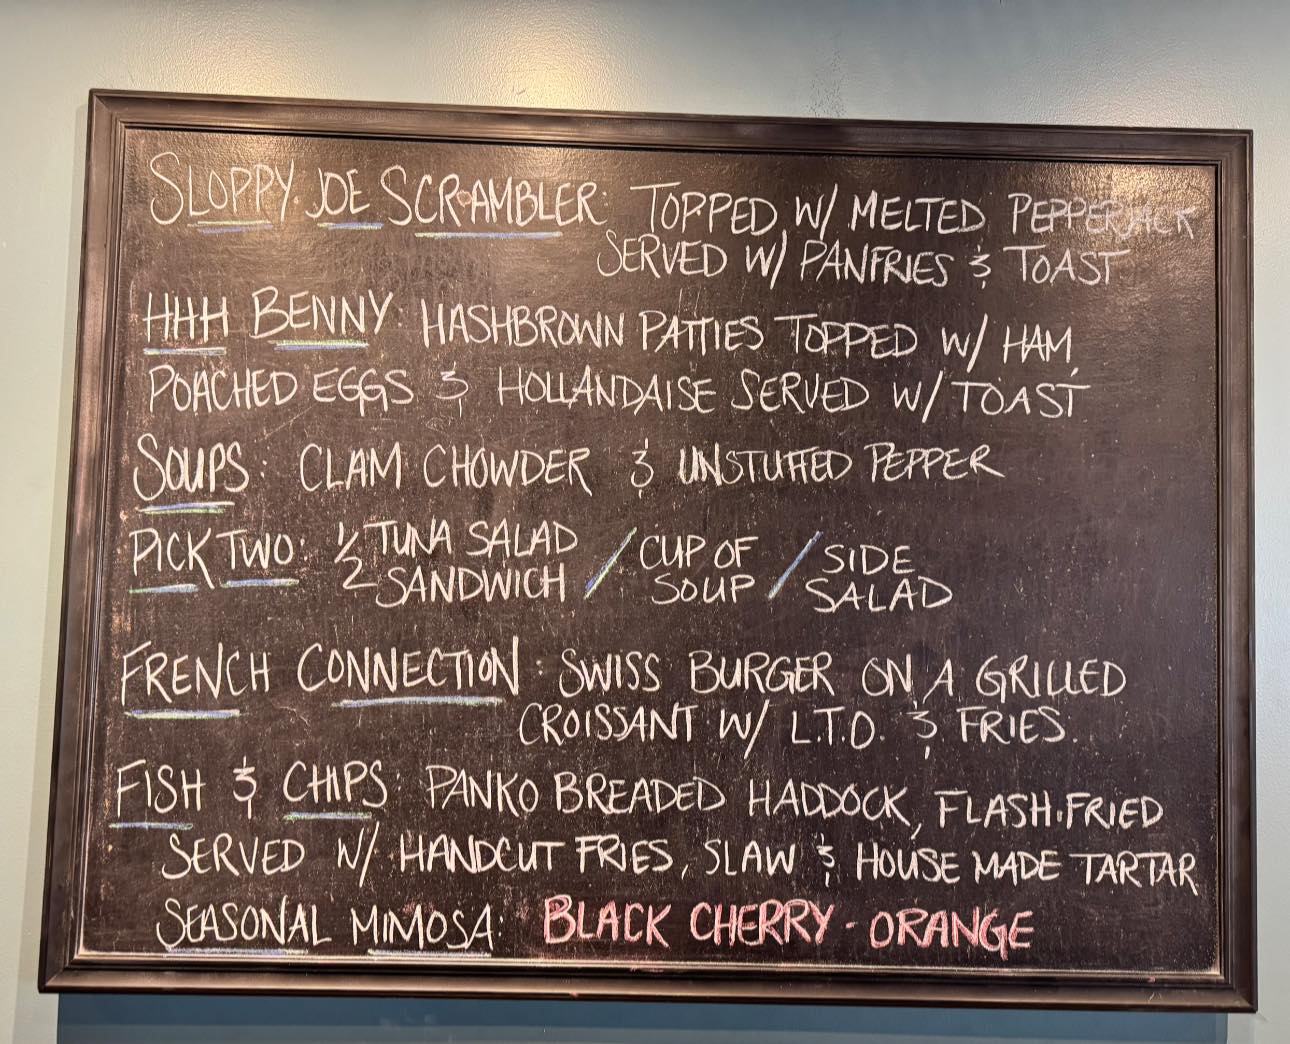 SLOPPY JOE SCRAMBLER: TOPPED W/ MELTED PEPPERJACK
SERVED W/ PANFRIES & TOAST
HHH BENNY: HASHBROWN PATTIES TOPPED W/ HAM,
POACHED EGGS & HOLLANDAISE SERVED W/ TOAST
SOUPS: CLAM CHOWDER & UNSTUFFED PEPPER
PICK TWO: 1/2 TUNA SALAD SANDWICH / CUP OF SOUP / SIDE SALAD
FRENCH CONNECTION: SWISS BURGER ON A GRILLED
CROISSANT W/ L.T.O. & FRIES.
FISH & CHIPS: PANKO BREADED HADDOCK, FLASH-FRIED
SERVED W/ HANDCUT FRIES, SLAW & HOUSE MADE TARTAR
SEASONAL MIMOSA: BLACK CHERRY - ORANGE